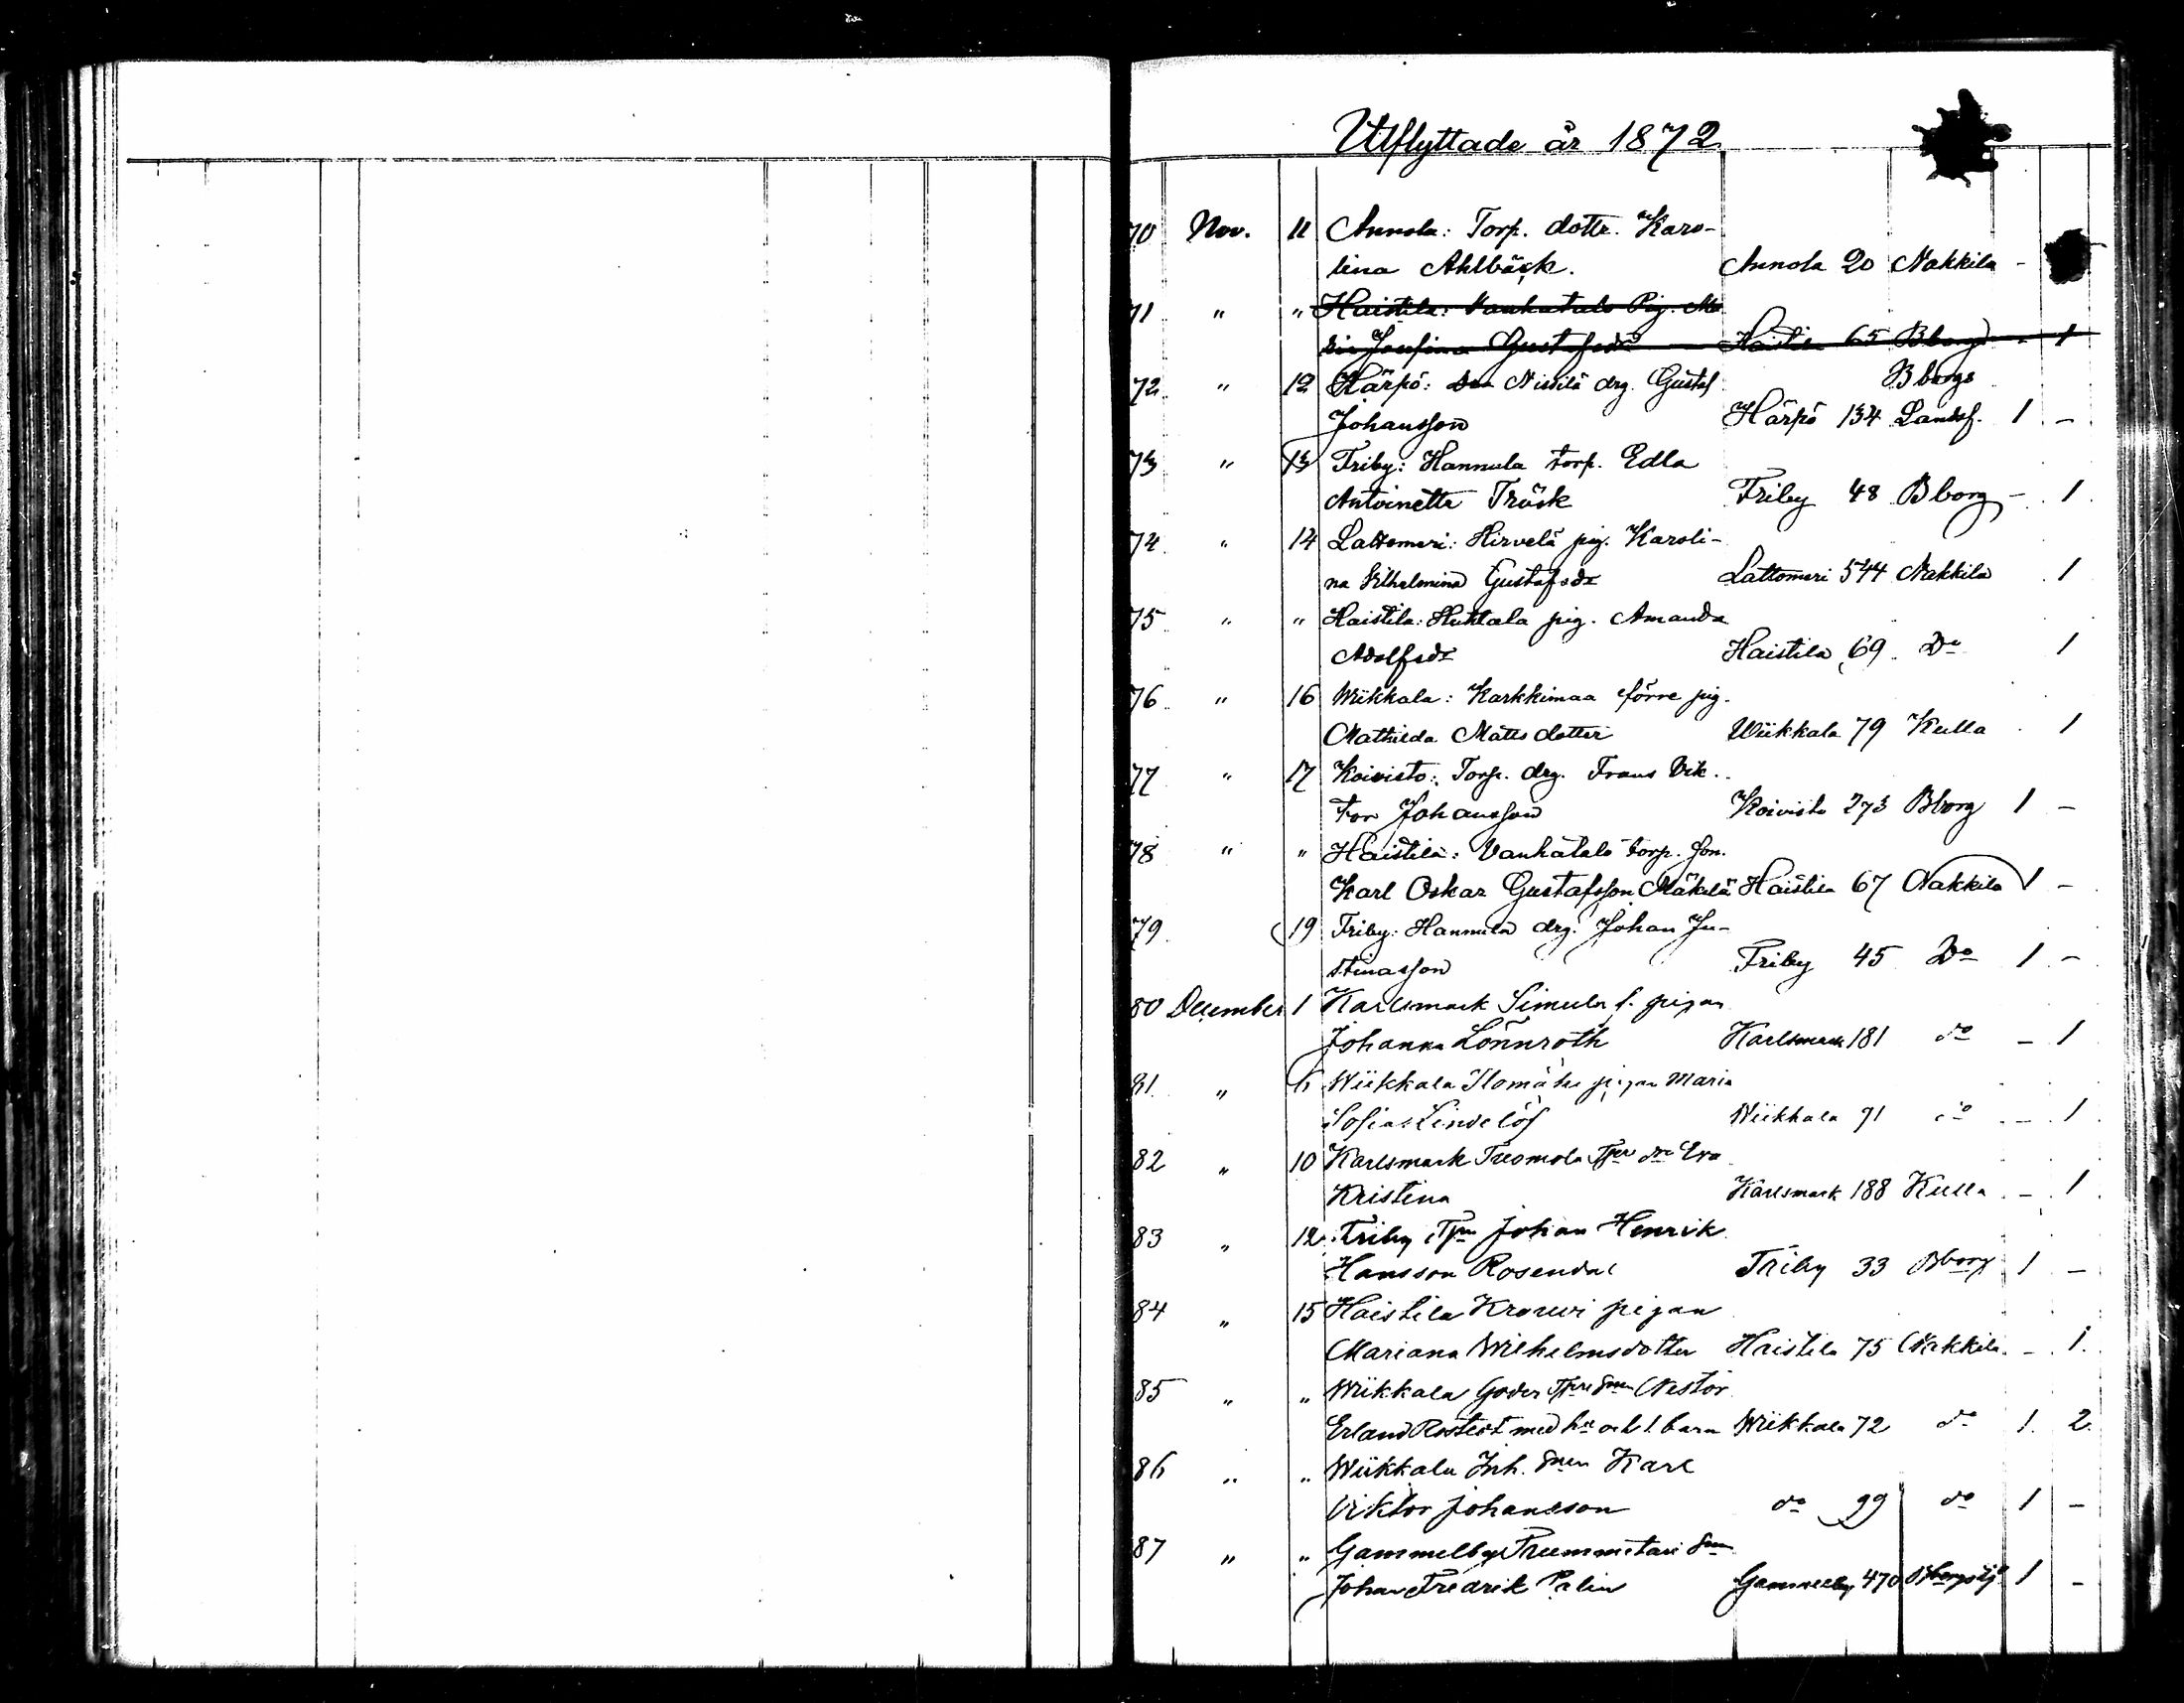 Utflyttade år 1872
70 Nov. 11 Annola: Torp. dottr. Karo-
lina Ahlbäck. Annola 20 Nakkila -
71 " " Haistila: Vanhatalo Pig. Ma
ria Josefina Gustafsdr Haistila 65 Bborg - 1
72 " 12 Härpö: Nissilä drg. Gustaf Bborgs
Johansson Härpö 134 Landsf. 1 -
73 " 13 Friby: Hannula torp. Edla
Antoinetta Träsk Friby 48 Bborg - 1
74 " 14 Lattomeri: Hirvelä pig. Karoli-
na Vilhelmina Gustafsdr Lattomeri 544 Nakkila 1
75 " " Haistila: Huhtala pig. Amanda
Adolfsdr Haistila 69 Do 1
76 " 16 Wiikkala: Karkkimaa förre pig.
Mathilda Mattsdotter Wiikkala 79 Kulla 1
77 " 17 Koivisto: Torp. drg. Frans Vik-
tor Johansson Koivisto 273 Bborg 1 -
78 " " Haistila: Vanhatalo torp. son.
Karl Oskar Gustafsson Mäkelä Haistila 67 Nakkila 1 -
79 19 Friby: Hannula drg. Johan Ju-
stinasson Friby 45 Do 1 -
80 December 1 Karlsmark Simula f. pigan
Johanna Lönnroth Karlsmark 181 do - 1
81 " 6 Wiikkala Ilomäki pigan Maria
Sofia Lindelöf Wiikkala 91 do - 1
82 " 10 Karlsmark Tuomola Tper dr Eva
Kristina Karlsmark 188 Kulla - 1
83 " 12 Friby Tpn Johan Henrik
Hansson Rosendal Friby 33 Bborg 1 -
84 " 15 Haistila Krouvi pigan
Mariana Wilhelmsdotter Haistila 75 Nakkila - 1
85 " " Wiikkala Goder Tpre Snen Nestor
Erland Rostedt med hu och 1 barn Wiikkala 72 do 1 2
86 " " Wiikkala Inh. Snen Karl
Viktor Johansson do 99 do 1 -
87 " " Gammelby Trummetari Sn
Johan Fredrik Palin Gammelby 470 1 -